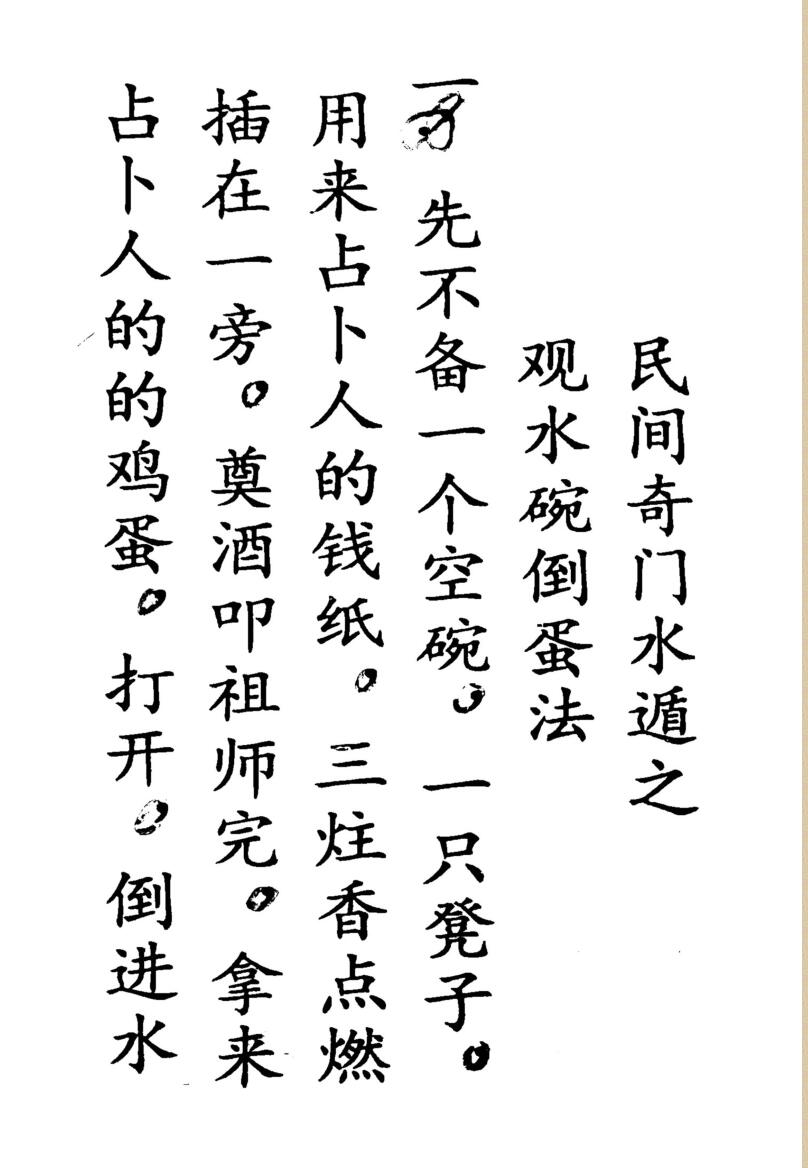 民间奇门水遁之
观水碗倒蛋法
一 先不备一个空碗。一只凳子。
用来占卜人的钱纸。三炷香点燃
插在一旁。奠酒叩祖师完。拿来
占卜人的的鸡蛋。打开。倒进水